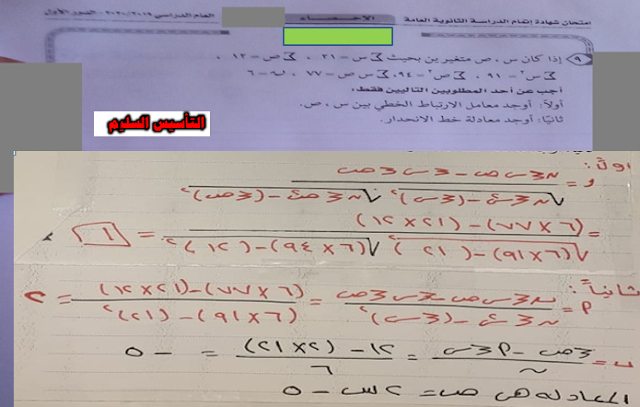 امتحان شهادة إتمام الدراسة الثانوية العامة الإحصاء العام الدراسى ٢٠١٩/٢٠٢٠ - الدور الأول
٩ إذا كان س ، ص متغيرين بحيث ∑ س = ٢١ ، ∑ ص = ١٢ ،
∑ س٢ = ٩١ ، ∑ ص٢ = ٩٤ ، ∑ س ص = ٧٧ ، ن = ٦
أجب عن أحد المطلوبين التاليين فقط:
أولاً: أوجد معامل الارتباط الخطي بين س ، ص.
ثانيًا: أوجد معادلة خط الانحدار.
التأسيس السليم
أولاً:
ر = ن∑س ص - ∑س ∑ص
√ن∑س٢ - (∑س)٢ √ن∑ص٢ - (∑ص)٢
= (٦×٧٧) - (٢١×١٢)
√(٦×٩١) - (٢١)٢ √(٦×٩٤) - (١٢)٢ = ١
ثانياً:
م = ن∑س ص - ∑س ∑ص = (٦×٧٧) - (٢١×١٢) = ٢
ن∑س٢ - (∑س)٢ (٦×٩١) - (٢١)٢
ب = ∑ص - م∑س = ١٢ - (٢×٢١) = -٥
ن ٦
المعادلة هى ص = ٢س - ٥